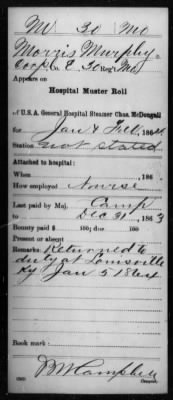 M 30 Mo
Morris Murphy
Corp, Co. E, 30 Reg't Mo.
Appears on
Hospital Muster Roll
of U.S.A. General Hospital Steamer Chas. McDougall
for Jan & Feb, 1864.
Station not stated
Attached to hospital:
When , 186 .
How employed Nurse
Last paid by Maj. Camp
to Dec 31, 1863
Bounty paid $ 100; due $ 100
Present or absent
Remarks: Returned to
duty at Louisville
Ky Jan 5 1864
Book mark:
Copyist.